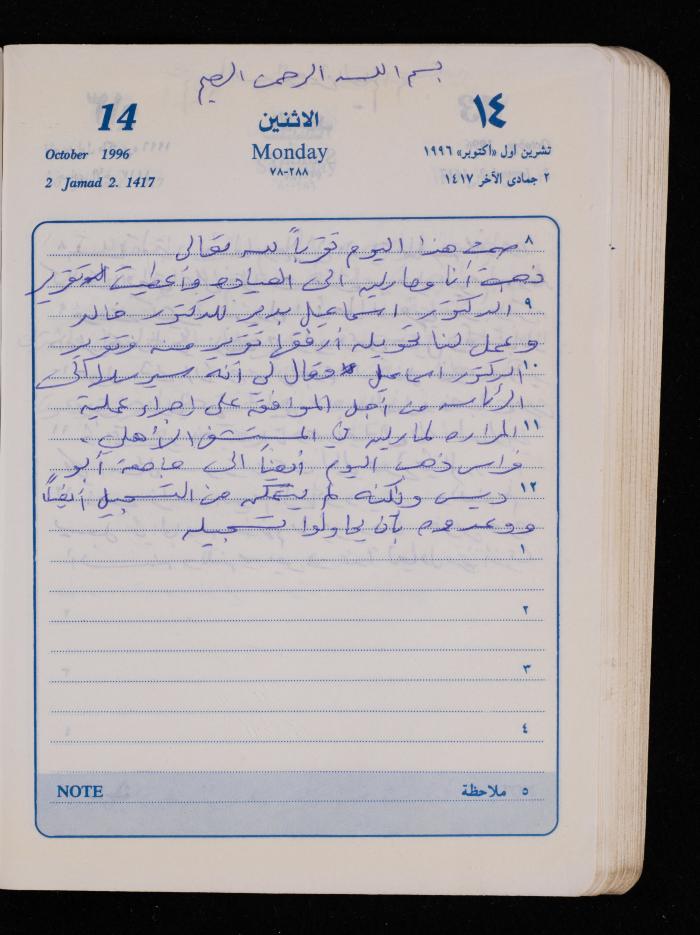 بسم الله الرحمن الرحيم
14 الاثنين ١٤
October 1996 Monday تشرين اول «اكتوبر» ١٩٩٦
2 Jamad 2. 1417 ٧٨-٢٨٨ ٢ جمادى الآخر ١٤١٧
٨ صمت هذا اليوم تقرباً لله تعالى
ذهبت أنا وماريه الى العياده وأعطيت تقرير
٩ الدكتور اسماعيل بدير للدكتور خالد
وعمل لنا تحويله أرفقها تقرير منه وتقرير
١٠ الدكتور اسماعيل وقال لي أنه سيرسلا الى
الرئاسه من أجل الموافقة على اجراء عملية
١١ المراره لماريه في المستشفى الأهلي .
فراس ذهب اليوم أيضاً الى جامعة أبو
١٢ ديس ولكنه لم يتمكن من التسجيل أيضاً
ووعدوه بأن يحاولوا تسجيله
١
٢
٣
٤
NOTE ٥ ملاحظة